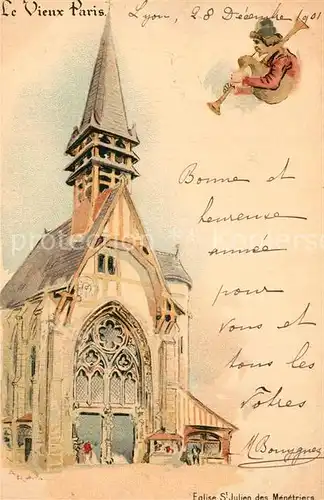 Le Vieux Paris.
Lyon, 28 Décembre 1901
Bonne et
heureuse
année
pour
Vous et
tous les
Vôtres
Eglise St Julien des Ménétriers